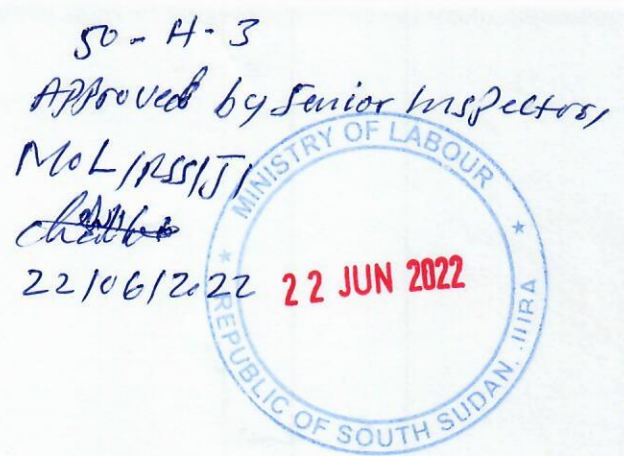 50-H-3
Approved by Senior Inspector,
MOL/RSS/J/
22/06/2022
22 JUN 2022
MINISTRY OF LABOUR
REPUBLIC OF SOUTH SUDAN.